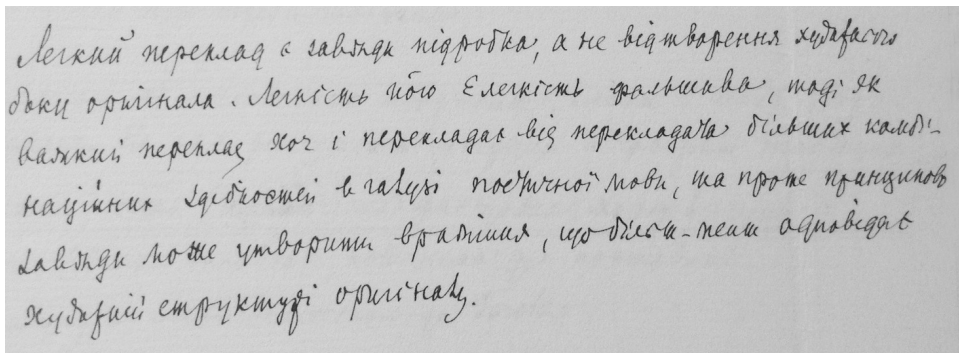 Легкий переклад є завжди підробка, а не відтворення
боку оригінала. Легкість його є легкість фальшива, тоді як
важкий переклад хоч і перекладає від перекладача більших комбі-
наційних здібностей в галузі поетичної мови, та проте принципово
завжди може утворити враження, що більш-менш одповідає
структурі оригіналу.